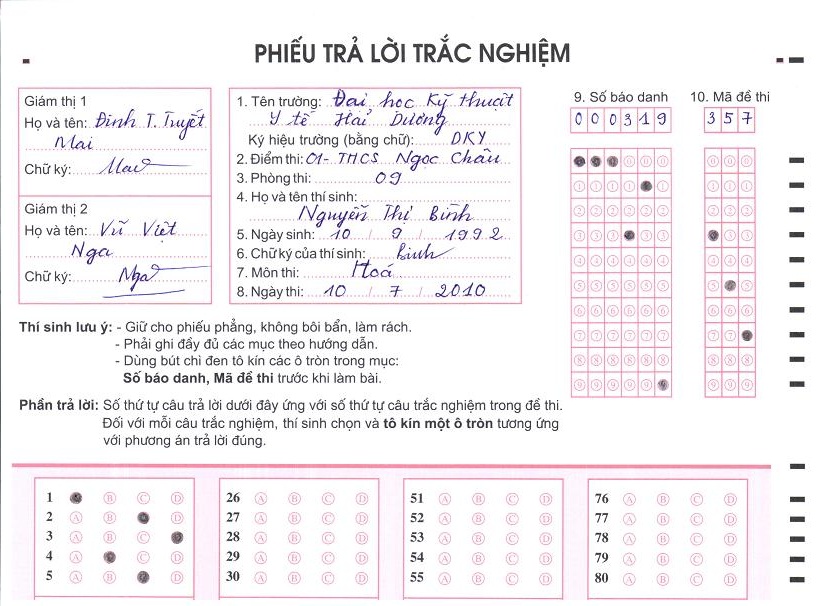 PHIẾU TRẢ LỜI TRẮC NGHIỆM
Giám thị 1
Họ và tên: Đinh T. Tuyết
Mai
Chữ ký: Mai
Giám thị 2
Họ và tên: Vũ Việt
Nga
Chữ ký: Nga
1. Tên trường: Đại học Kỹ thuật
Y tế Hải Dương
Ký hiệu trường (bằng chữ): DKY
2. Điểm thi: 01- THCS Ngọc Châu
3. Phòng thi: 09
4. Họ và tên thí sinh:
Nguyễn Thị Bình
5. Ngày sinh: 10 / 9 / 1992
6. Chữ ký của thí sinh: Bình
7. Môn thi: Hoá
8. Ngày thi: 10 / 7 / 2010
9. Số báo danh
0 0 0 3 1 9
10. Mã đề thi
3 5 7
Thí sinh lưu ý: - Giữ cho phiếu phẳng, không bôi bẩn, làm rách.
- Phải ghi đầy đủ các mục theo hướng dẫn.
- Dùng bút chì đen tô kín các ô tròn trong mục:
Số báo danh, Mã đề thi trước khi làm bài.
Phần trả lời: Số thứ tự câu trả lời dưới đây ứng với số thứ tự câu trắc nghiệm trong đề thi.
Đối với mỗi câu trắc nghiệm, thí sinh chọn và tô kín một ô tròn tương ứng
với phương án trả lời đúng.
1 B C D
2 A B D
3 A B C
4 A C D
5 A B D
26 A B C D
27 A B C D
28 A B C D
29 A B C D
30 A B C D
51 A B C D
52 A B C D
53 A B C D
54 A B C D
55 A B C D
76 A B C D
77 A B C D
78 A B C D
79 A B C D
80 A B C D